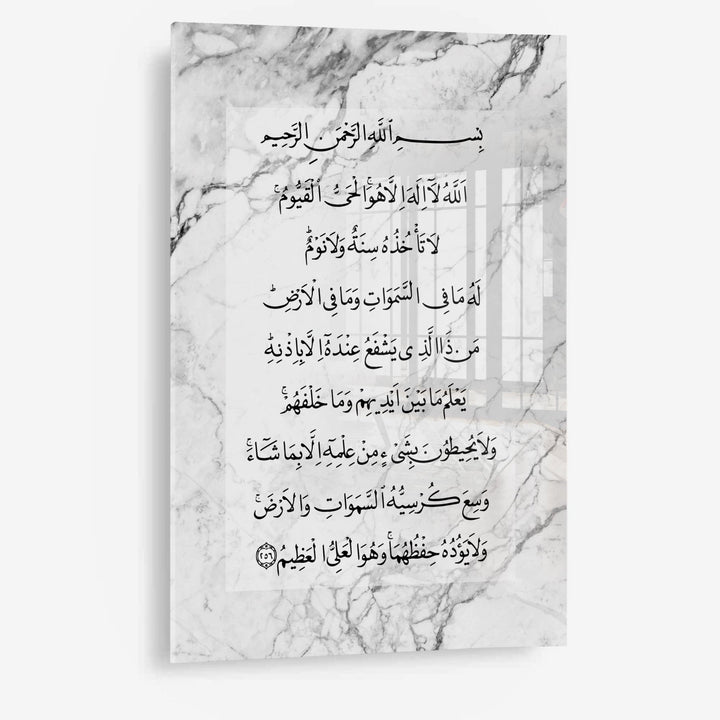 بِسْمِ اللَّهِ الرَّحْمَنِ الرَّحِيمِ
اَللَّهُ لَآ اِلَهَ اِلَّا هُوَۚ اَلْحَىُّ الْقَيُّومُۚ
لَا تَأْخُذُهُ سِنَةٌ وَلَا نَوْمٌۜ
لَهُ مَا فِى السَّمَوَاتِ وَمَا فِى الْاَرْضِۜ
مَنْ ذَا الَّذِى يَشْفَعُ عِنْدَهُٓ اِلَّا بِاِذْنِهِۜ
يَعْلَمُ مَا بَيْنَ اَيْدِيهِمْ وَمَا خَلْفَهُمْۚ
وَلَا يُحِيطُونَ بِشَىْءٍ مِنْ عِلْمِهِٓ اِلَّا بِمَا شَٓاءَۚ
وَسِعَ كُرْسِيُّهُ السَّمَوَاتِ وَالْاَرْضَۚ
وَلَا يَؤُدُهُ حِفْظُهُمَاۚ وَهُوَ الْعَلِىُّ الْعَظِيمُ ﴿٢٥٦﴾